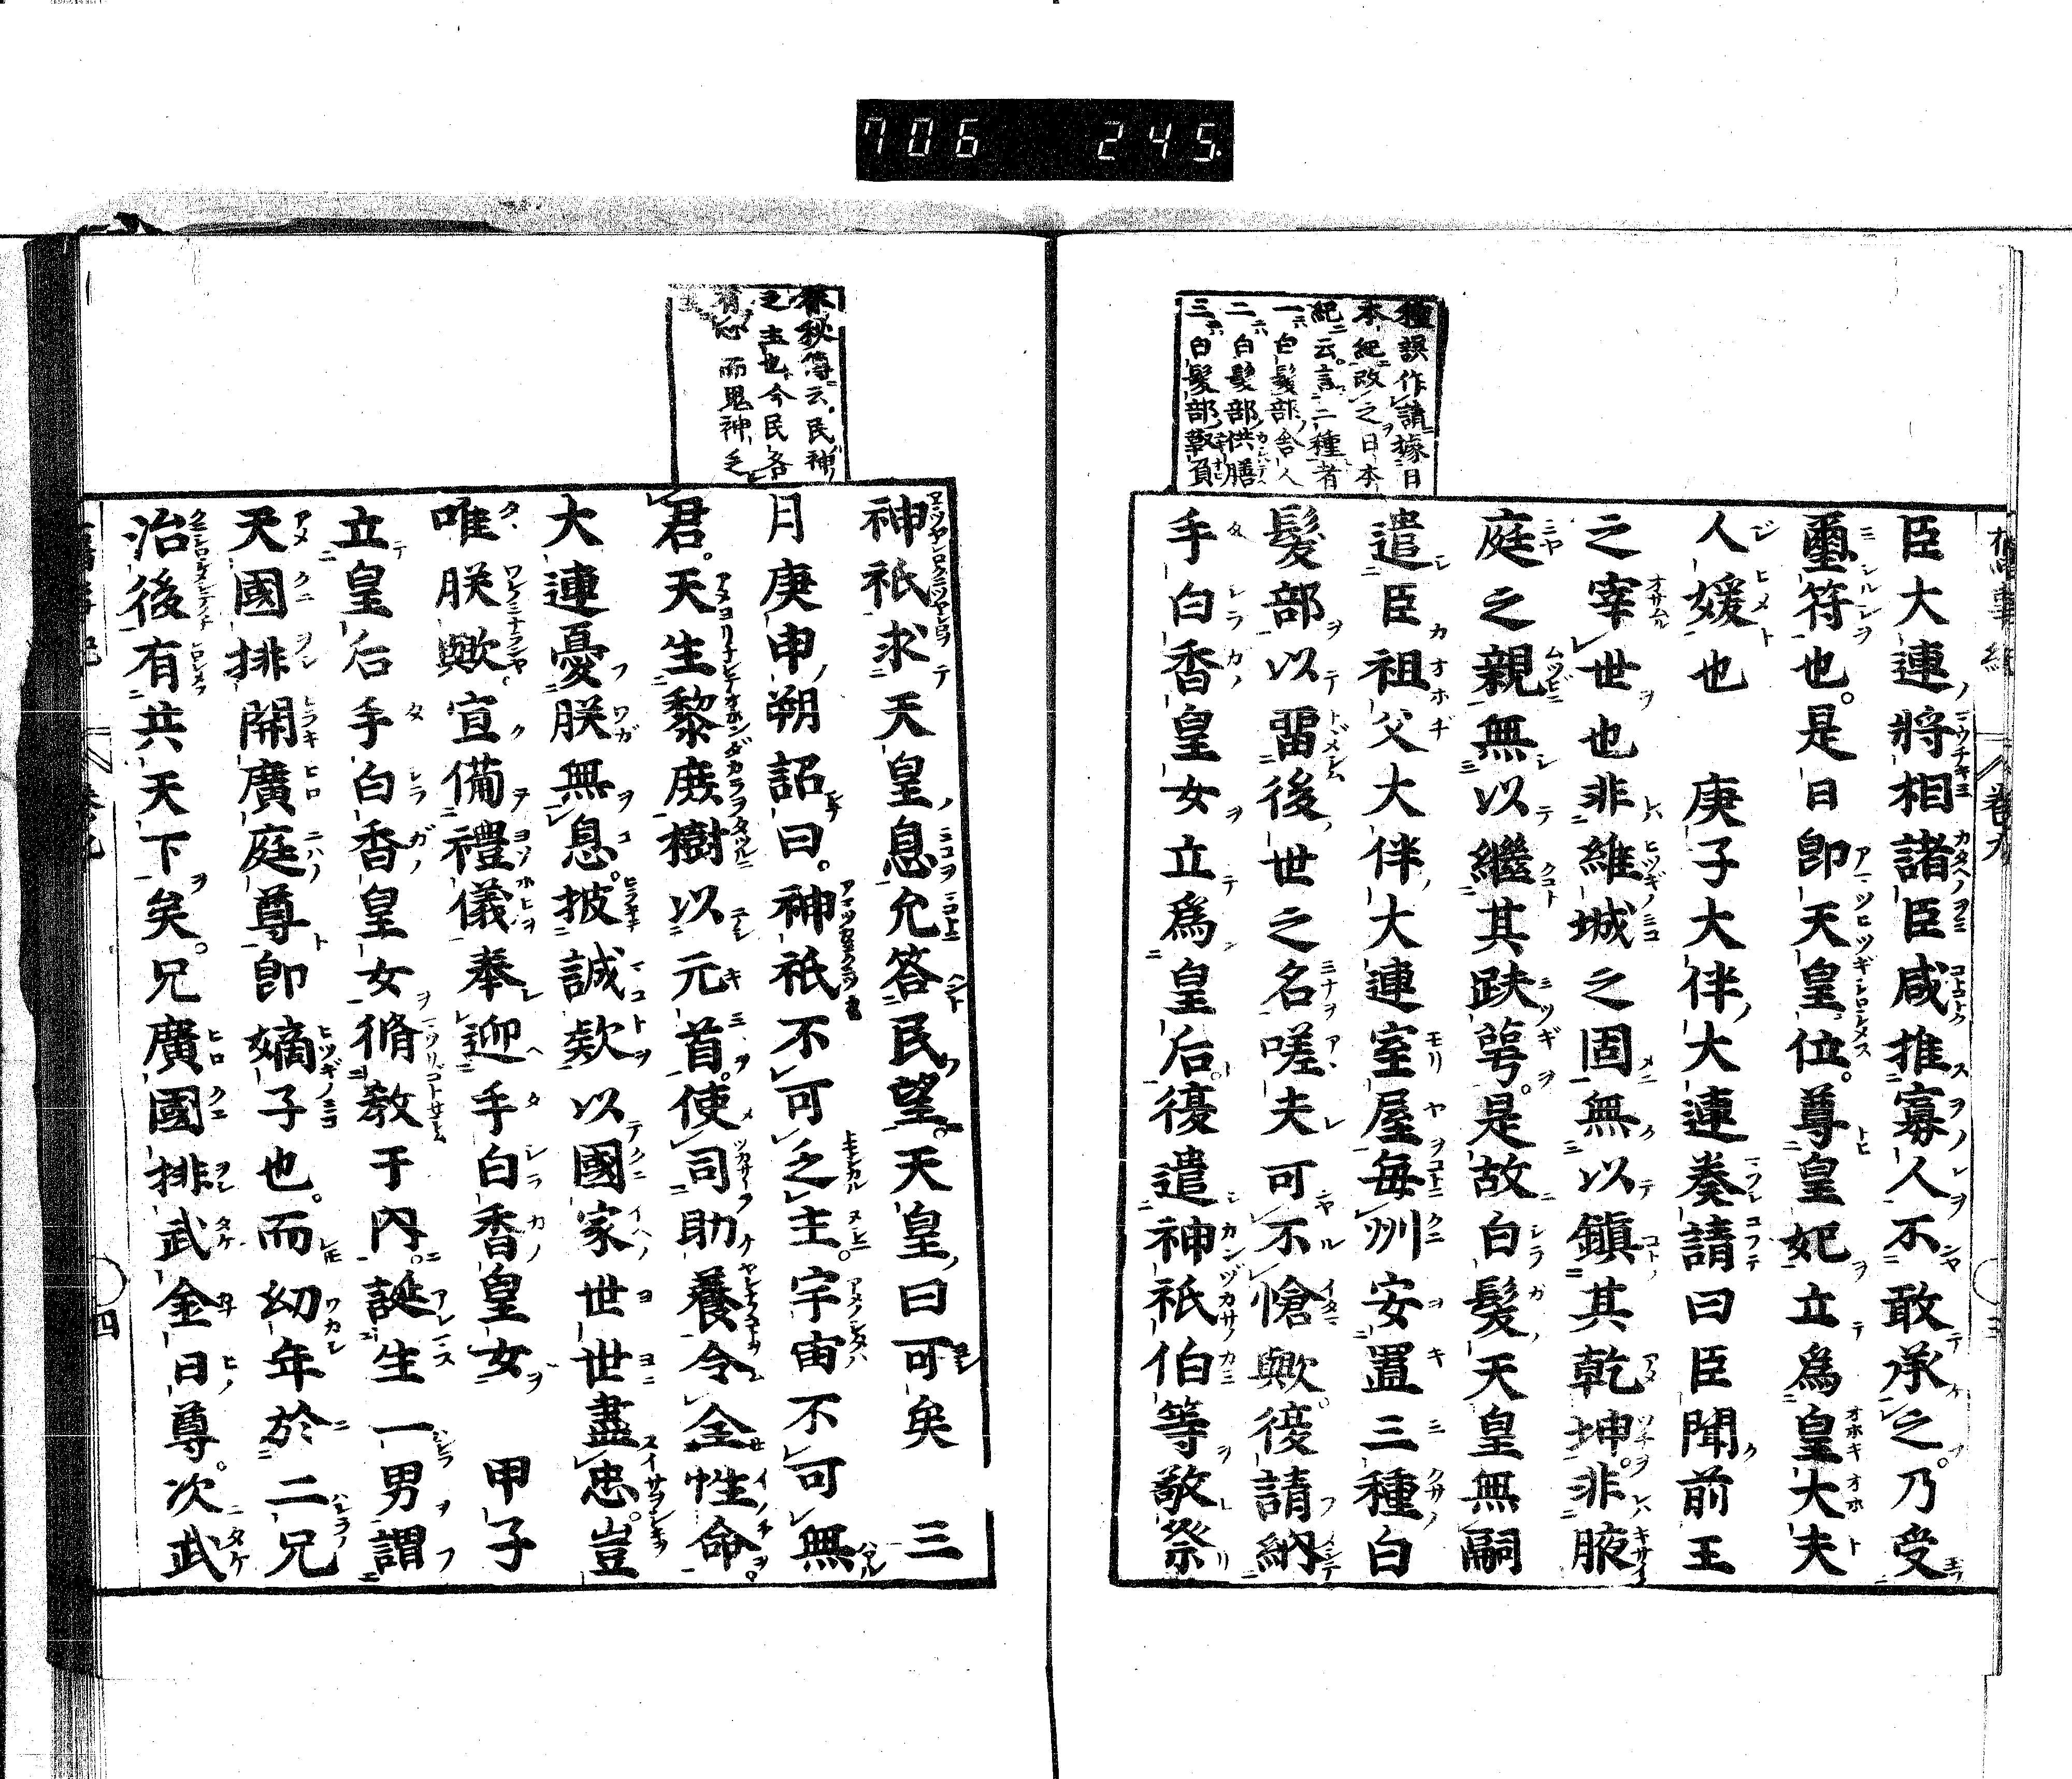 706 245
種誤作請據日
本紀改之日本
紀云言三種者
一白髮部舍人
二白髮部供膳
三白髮部靫負
臣大連將相諸臣咸推寡人不敢承之乃受
璽符也是日卽天皇位尊皇妃立爲皇大夫
人媛也 庚子大伴大連奏請曰臣聞前王
之宰世也非維城之固無以鎮其乾坤非腋
庭之親無以繼其趺萼是故白髮天皇無嗣
遣臣祖父大伴大連室屋毎州安置三種白
髮部以畱後世之名嗟夫可不愴歟復請納
手白香皇女立爲皇后復遣神祇伯等敬祭
春秋傳云民神
之主也今民各
有心而鬼神乏
主
神祇求天皇息允答民望天皇曰可矣 三
月庚申朔詔曰神祇不可乏主宇宙不可無
君天生黎庶樹以元首使司助養令全性命
大連憂朕無息披誠欵以國家世世盡忠豈
唯朕歟宣備禮儀奉迎手白香皇女 甲子
立皇后手白香皇女脩敎于內誕生一男謂
天國排開廣庭尊卽嫡子也而幼年於二兄
治後有共天下矣兄廣國排武金日尊次武